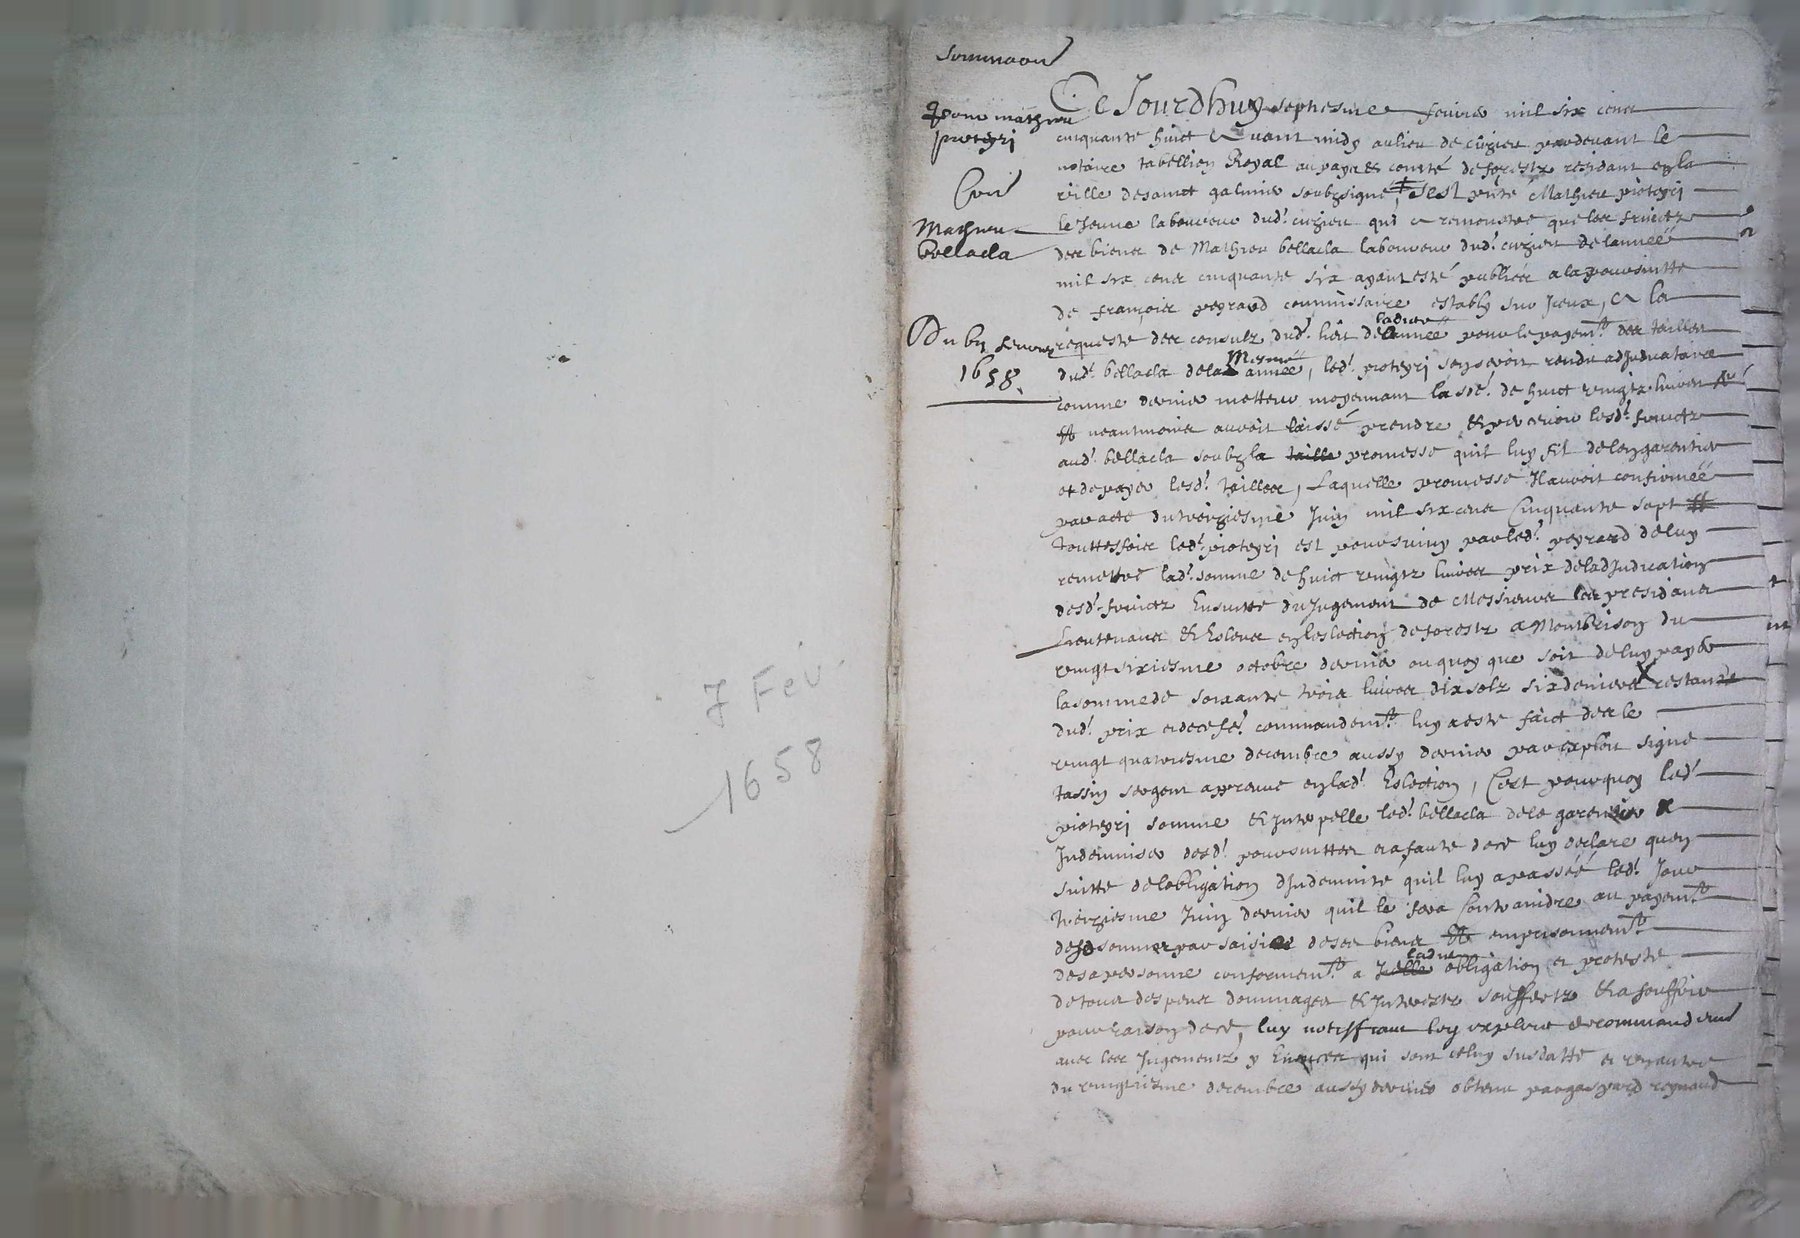 7 Fev
1658
Sommaon
Pour mathieu
pioteyri
Con
Mathieu
bellacla
Du by fevrier
1658.
Ce Jourdhuy septiesme febvrier mil six cens
cinquante huict avant midy au lieu de cuzieu pardevant le
notaire tabellion Royal au pays et comté de forestz residant en la
ville de sainct galmier soubzsigné, s'est pnté Mathieu pioteyri
le Jeune laboureur dud. cuzieu qui a remonstré que les fruictz
des biens de Mathieu bellacla laboureur dud. cuzieu de lannéé
mil six cens cinquante six ayant esté publiés a la poursuitte
de françois peyrard commissaire estably sur Iceux, a la
requeste des consulz dud. lieu de lad. année pour le payemt. des tailles
dud. bellacla de la Mesme année, led. pioteyri sen seroit rendu adjudicataire
comme dernier metteur moyennant la sōe. de huict vingtz livres
neantmoins auroit laissé prendre & percevoir lesd. fruictz
aud. bellacla soubz la promesse quil luy fit de len garentir
et de payer lesd. tailles, Laquelle promesse Il auroit confirméé
par acte du treiziesme Juin mil six cens Cinquante sept
touttesfois led. pioteyri est poursuivy par led. peyrard de luy
remettre lad. somme de huict vingtz livres prix de ladjudication
desd. fruictz Ensuitte du Jugement de Messieurs les presidans
Lieutenans & Esleus en leslection de forestz a Montbrison du
vingt sixiesme octobre dernier ou quoy que soit de luy payer
la somme de soixante trois livres dix solz six deniers restans
dud. prix et de ce fe. commandemt. luy a esté faict des le
vingt quatriesme decembre aussy dernier par exploit signé
tassin sergent en lad. Eslection, C'est pourquoy led.
pioteyri somme & Interpelle led. bellacla de le garentir &
Indemniser desd. poursuittes et a faute de ce luy declare quen
suitte de lobligation dIndemnité quil luy a passéé led. Jour
treiziesme Juin dernier quil le fera Contraindre au payemt.
desd sommes par saisie de ses biens & emprisonnemt.
de sa personne conformemt. a lad. obligation et proteste
de tous despens dommages & Interestz souffertz & a souffrir
pour raison de ce, luy notiffiant les exploit de commandemt
avec les Jugementz y Enoncés qui sont celuy susdatté et un autre
du vingtiesme decembre aussy dernier obtenu par gaspard reynaud